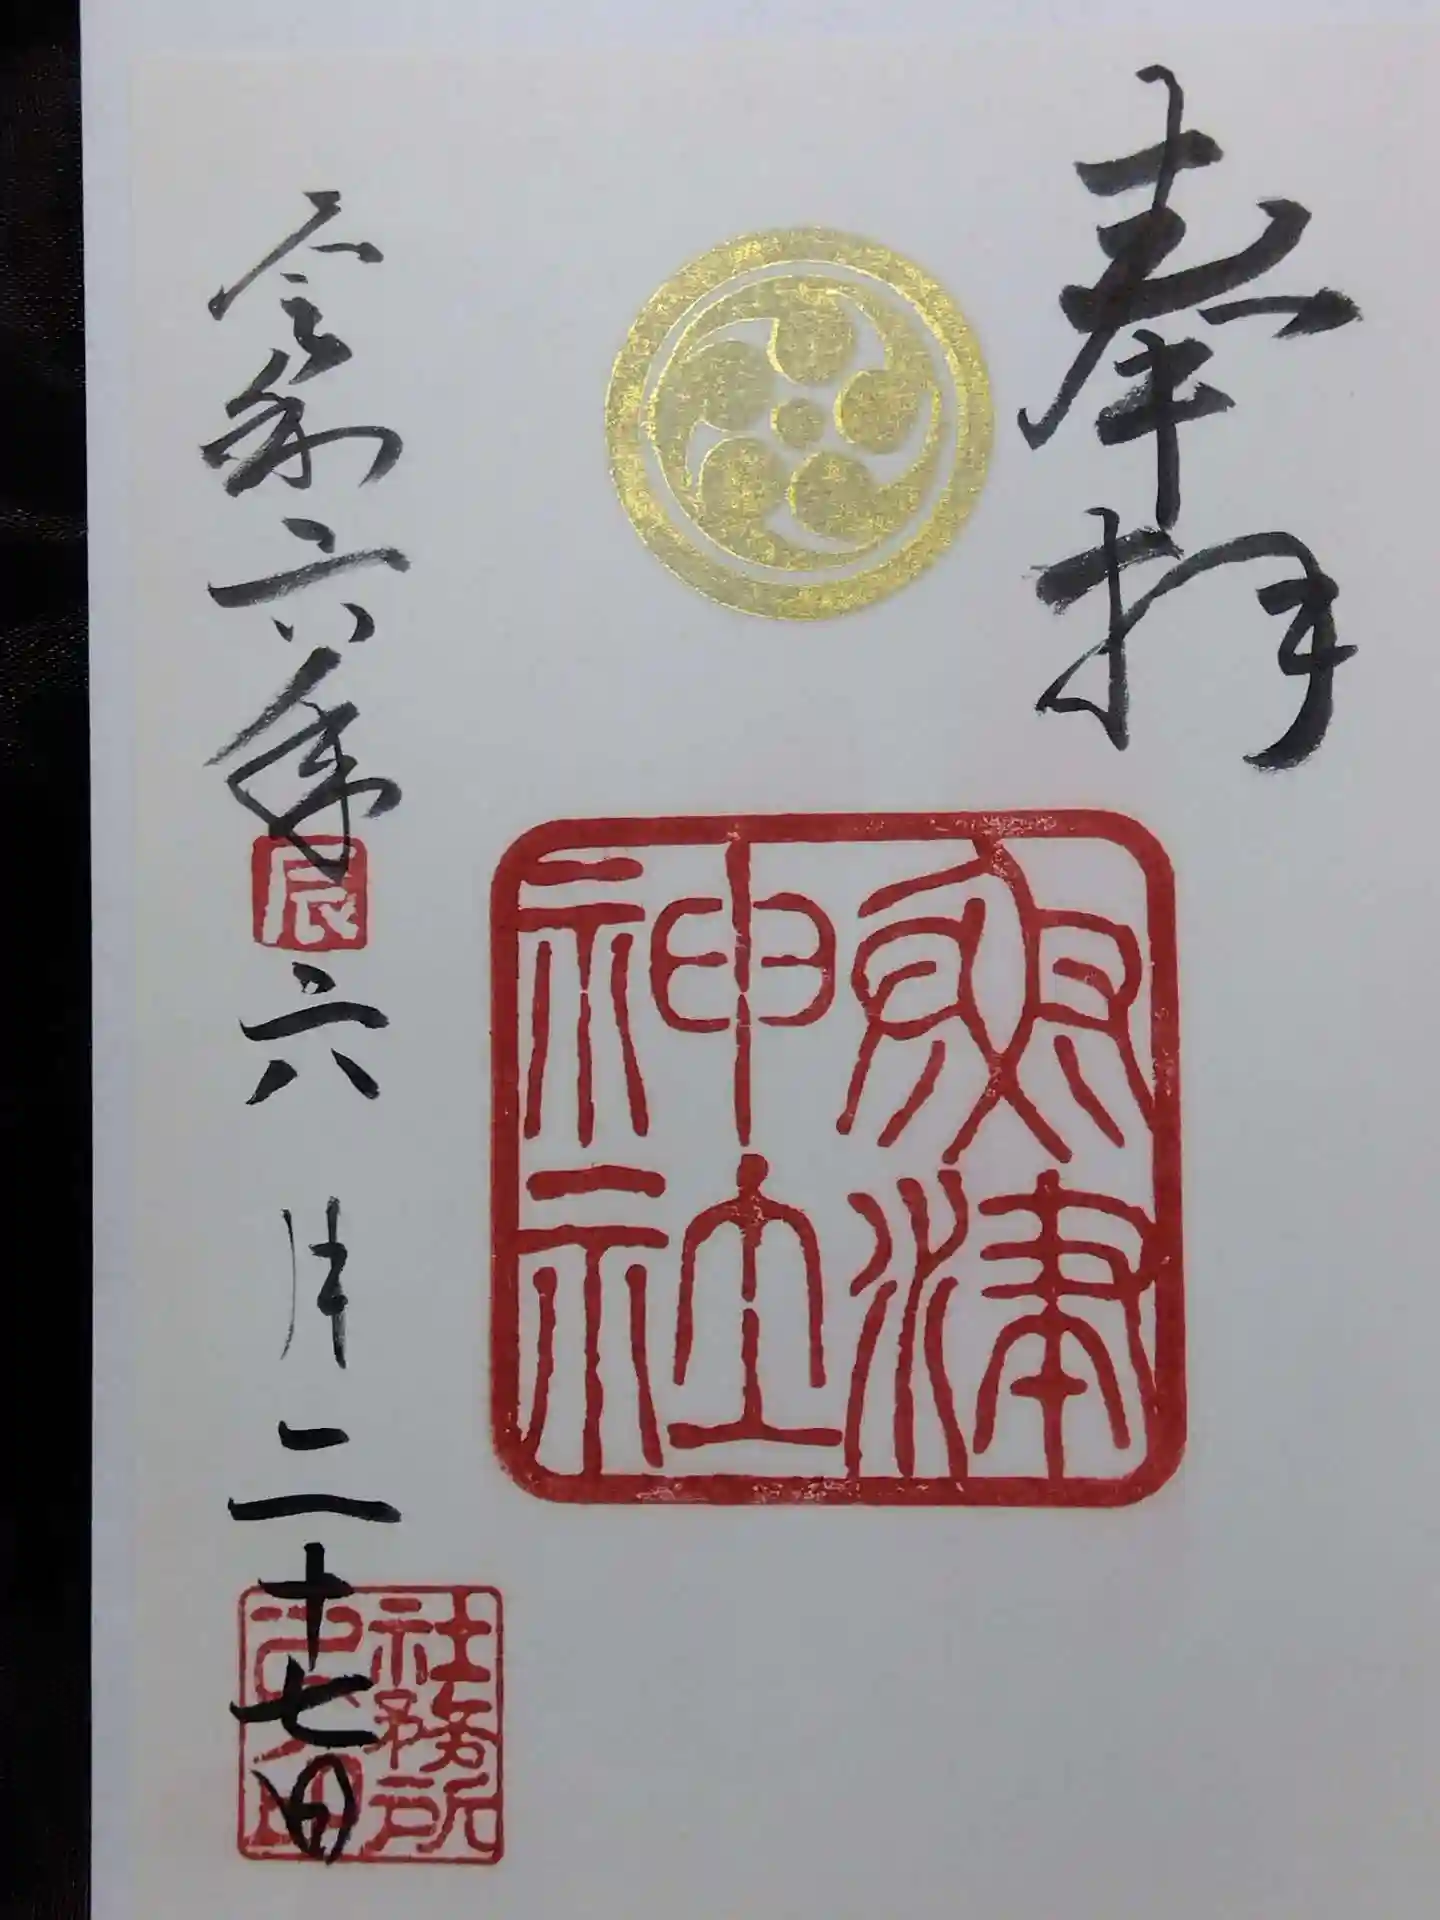 奉拝
津
神社
令和六年辰六月二十七日
社務所
之印